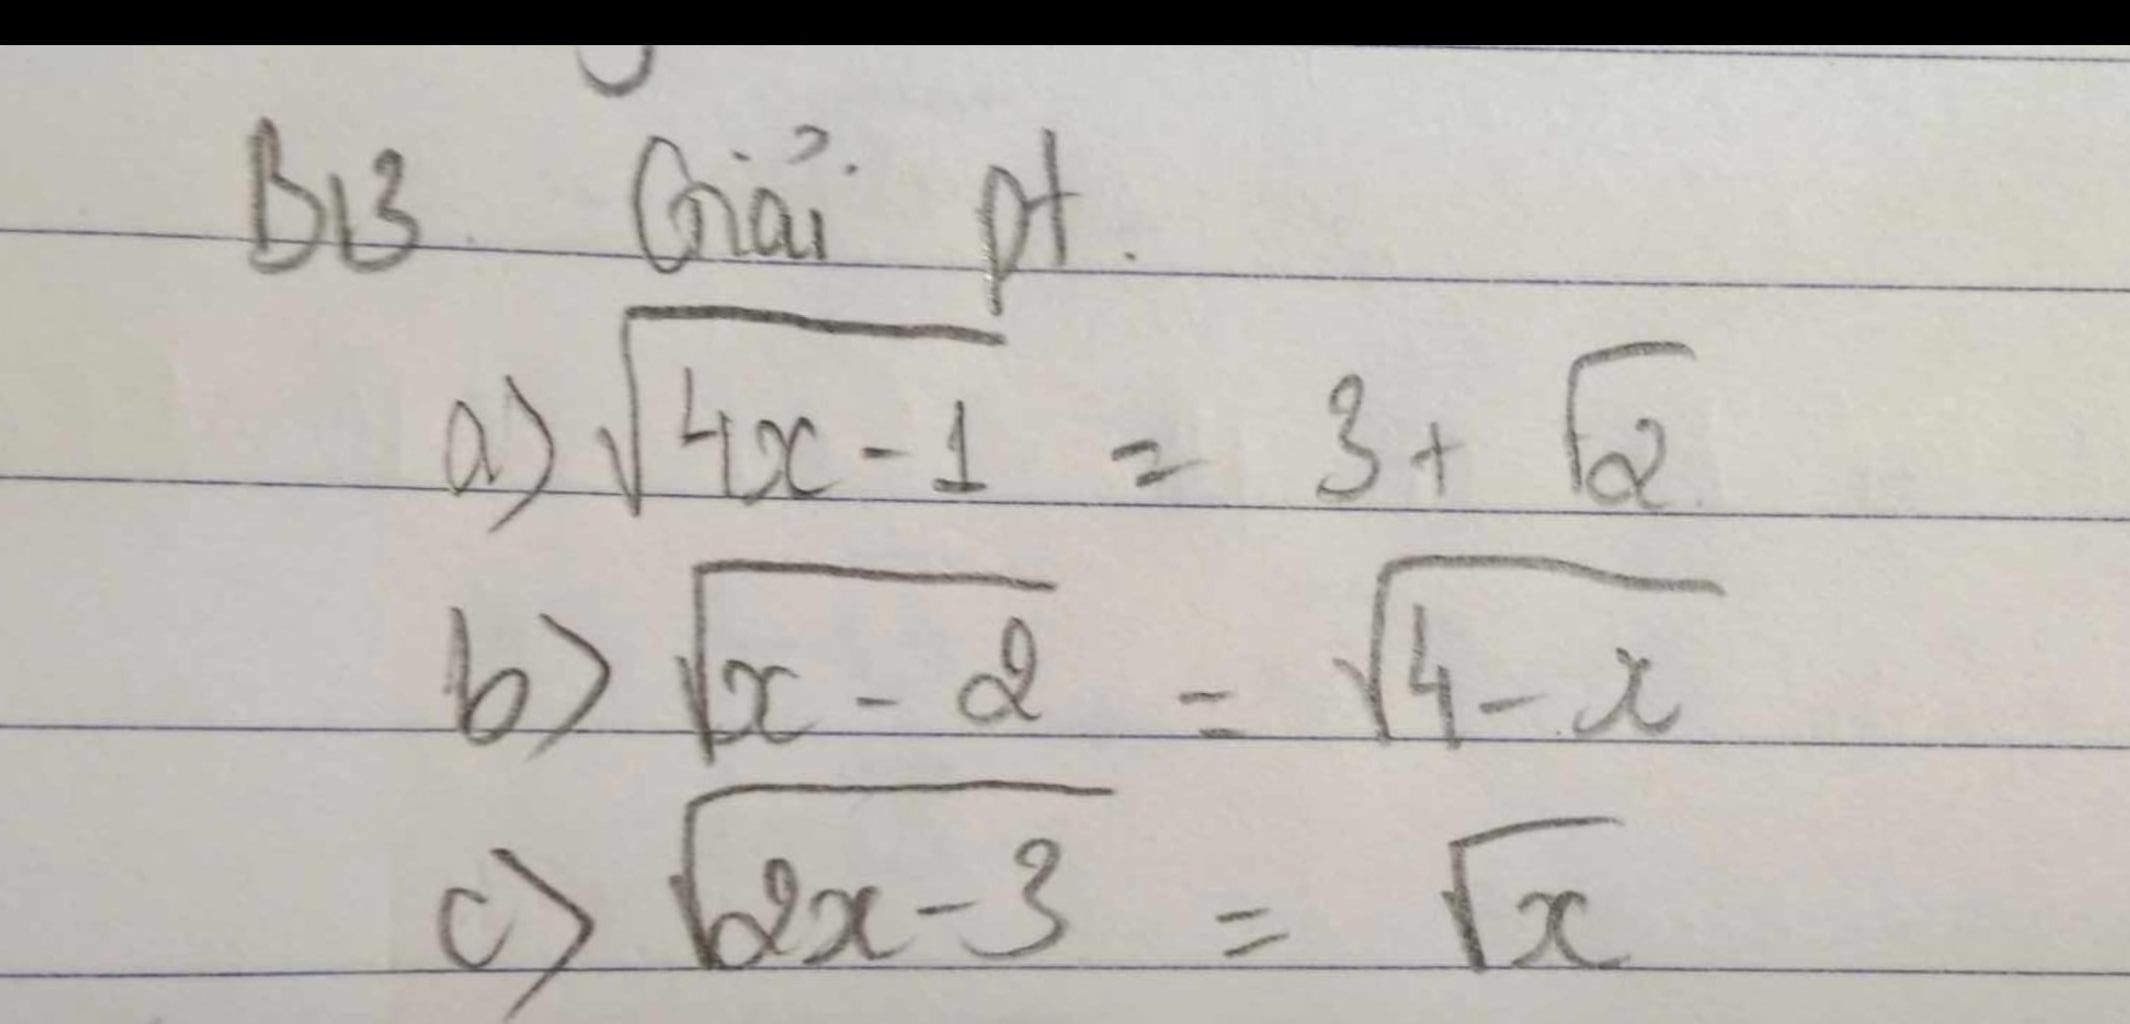 B13 Giải pt.
a) √4x - 1 = 3 + √2
b) √x - 2 = √4 - x
c) √2x - 3 = √x